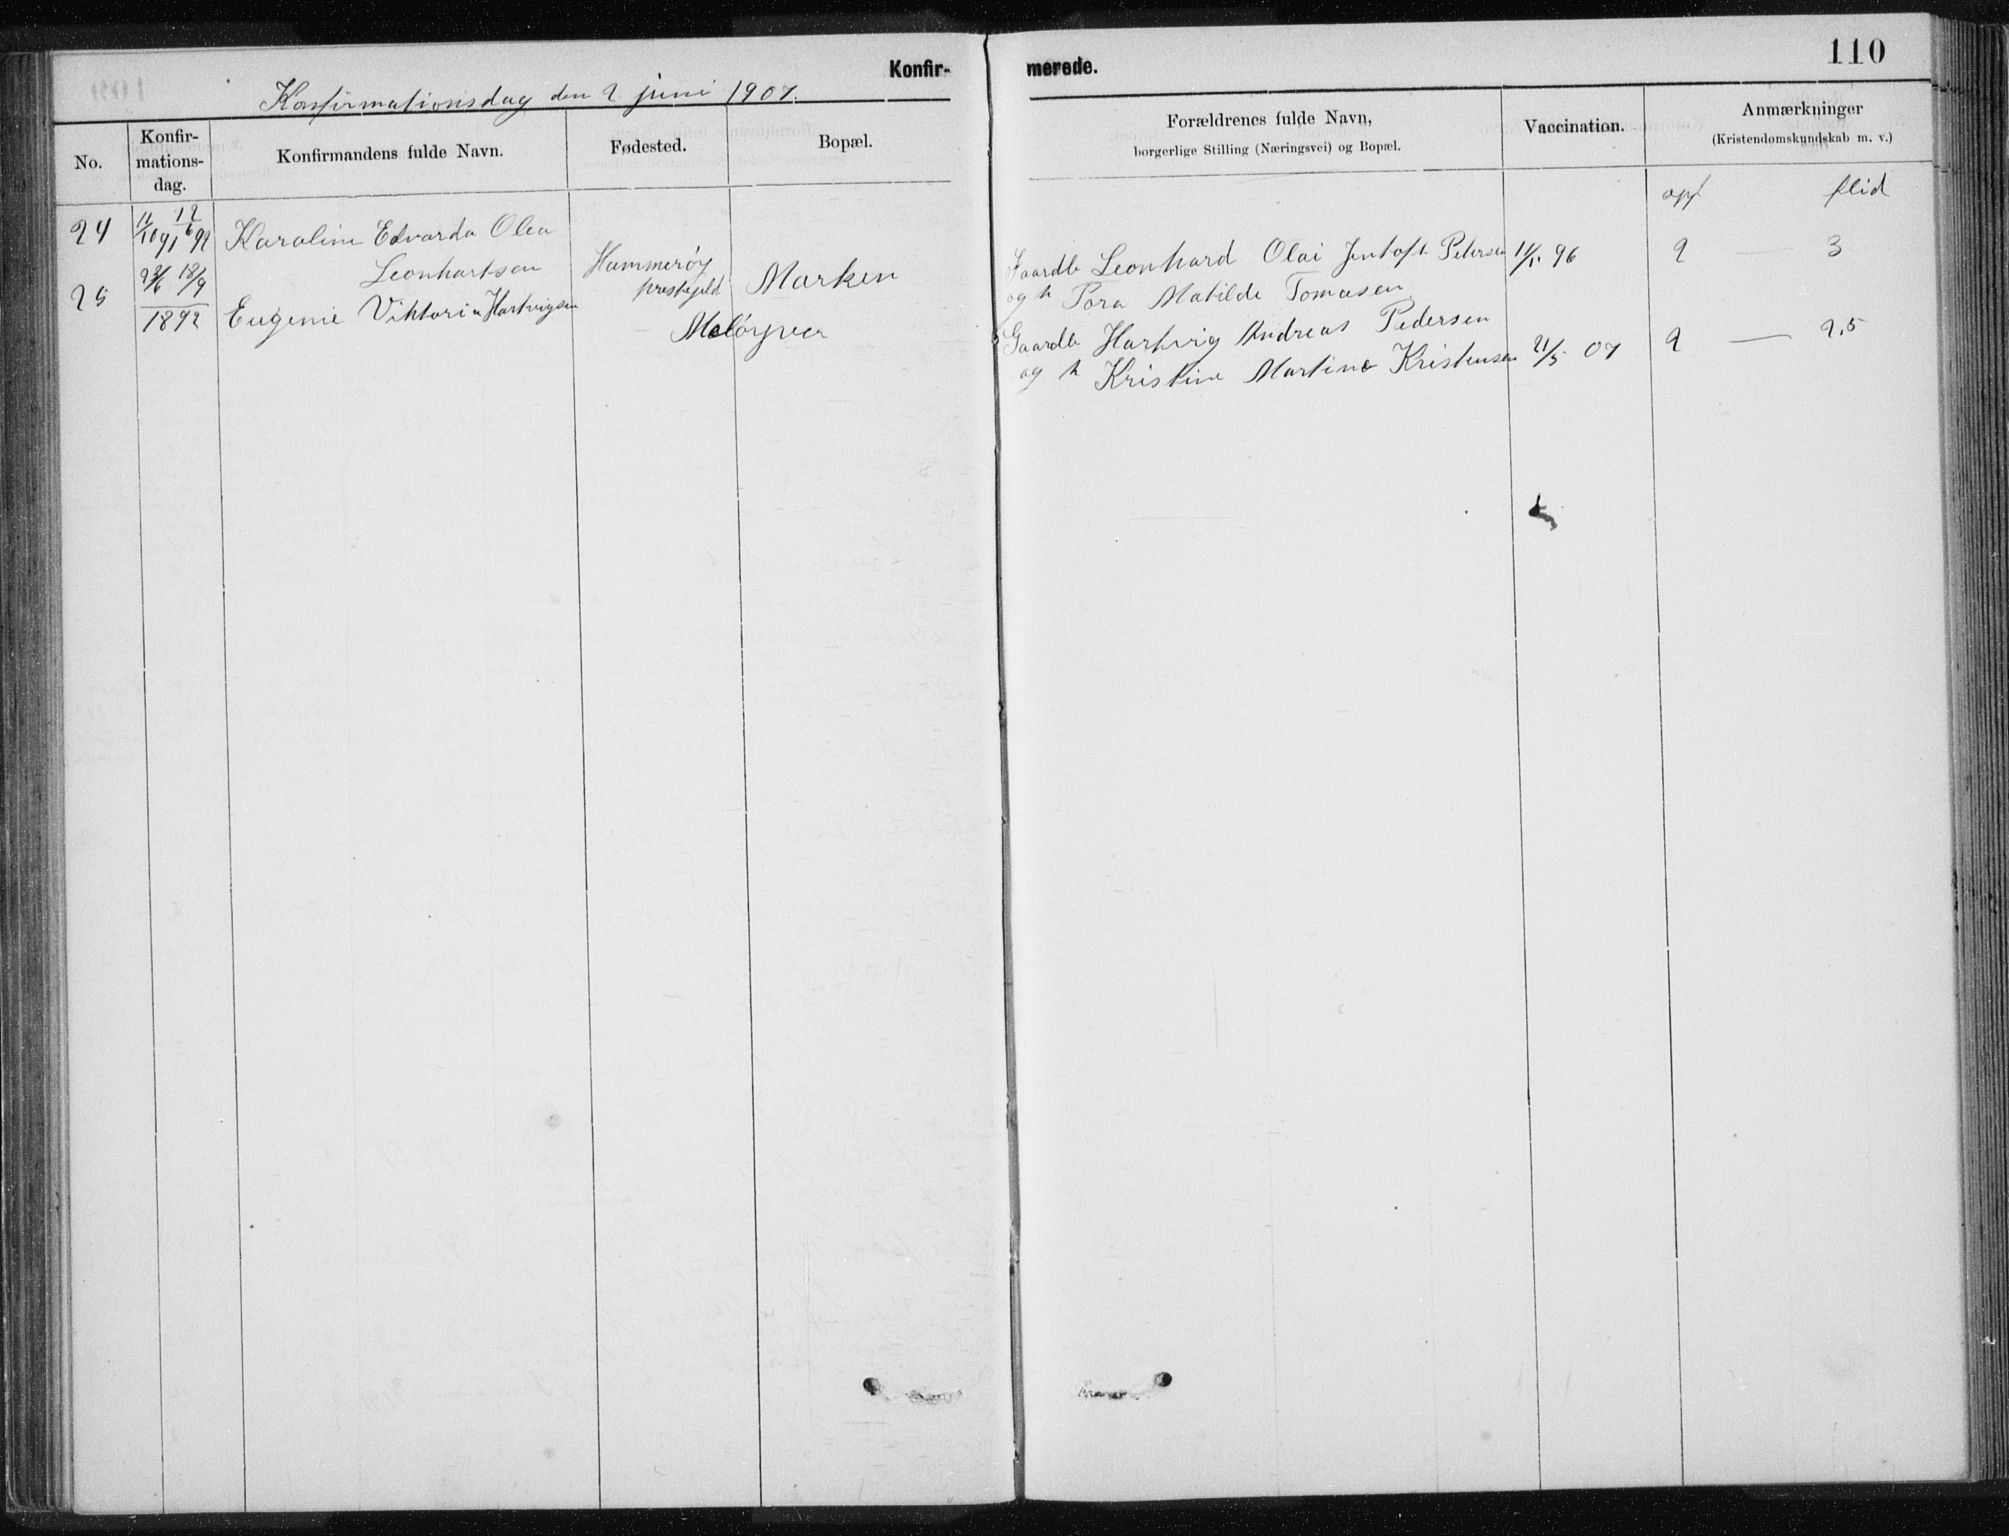 Konfir-
merede.
110
Konfirmationsdag den 2 juni 1907.
No.
Konfir-
mations-
dag.
Konfirmandens fulde Navn.
Fødested.
Bopæl.
Forældrenes fulde Navn,
borgerlige Stilling (Næringsvei) og Bopæl.
Vaccination.
Anmærkninger
(Kristendomskundskab m. v.)
opf flid
24 11/10 91 12/6 92 Karoline Edvarda Olea
Leonhartsen Hammerøy
prestegjeld Marken
Gaardb Leonhard Olai Jentoft Petersen 11/5 96 2 — 3
og h Tora Matilde Tomasen
25 18/9
1892 Eugenie Viktoria Hartvigsen
— Meløyvær
Gaardb Hartvig Andreas Pedersen
og h Kristine Martine Kristensen 21/5 07 2 — 2,5